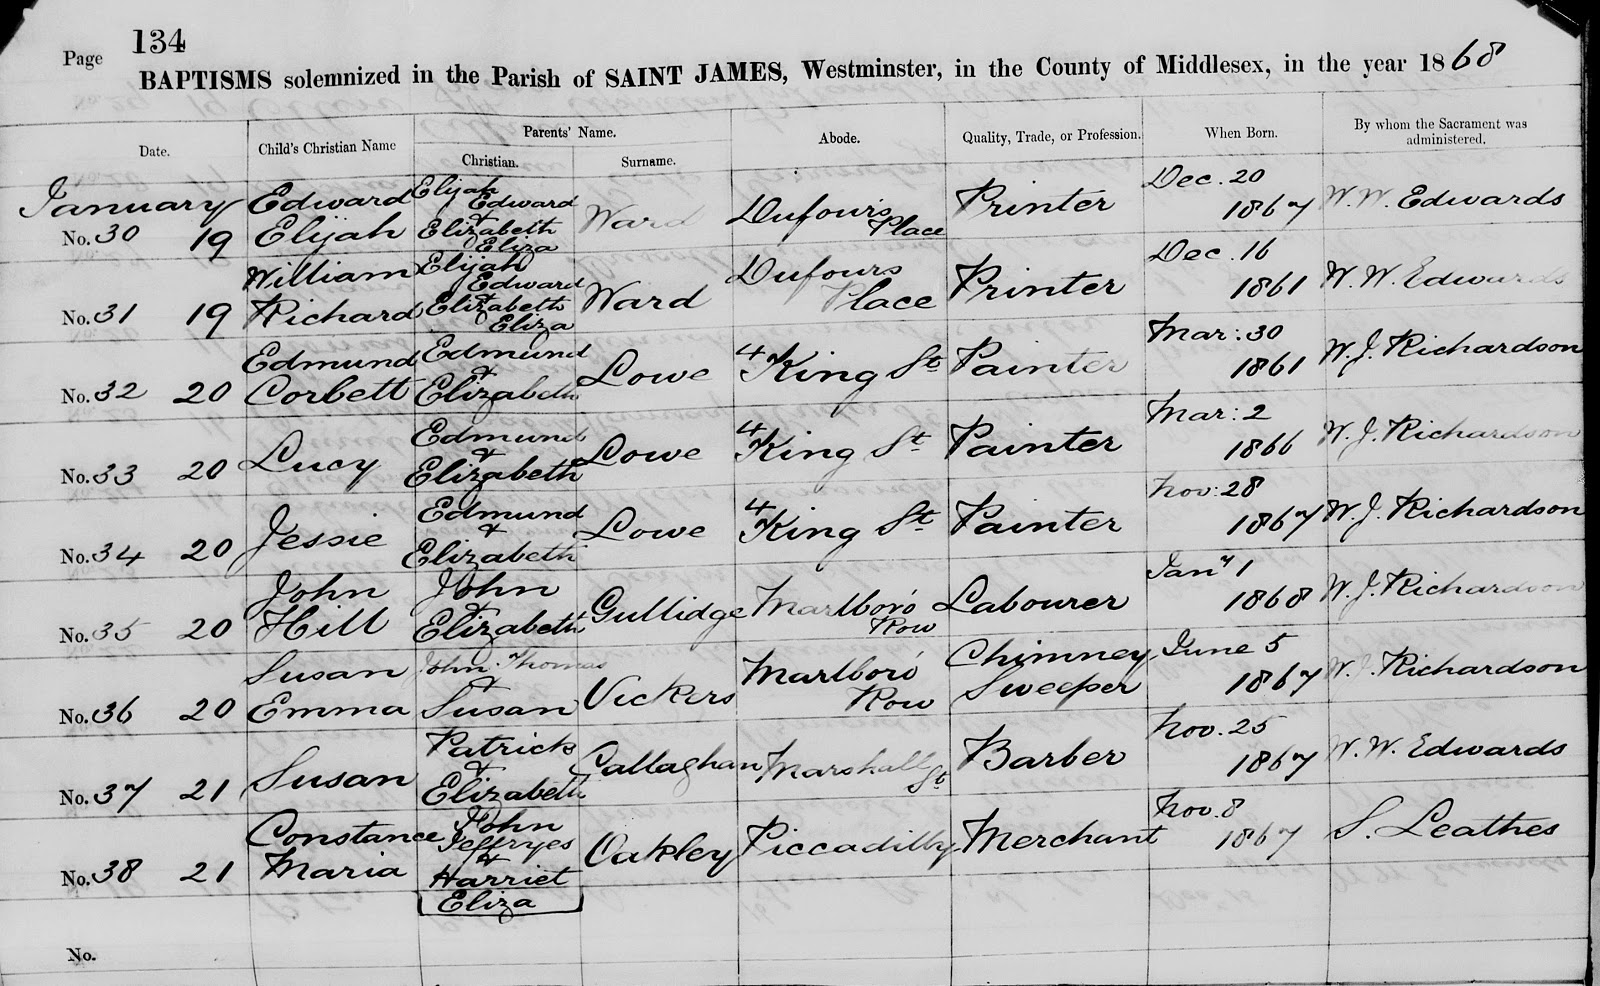 Page 134
BAPTISMS solemnized in the Parish of SAINT JAMES, Westminster, in the County of Middlesex, in the year 1868
Date. Child's Christian Name Parents' Name. Abode. Quality, Trade, or Profession. When Born. By whom the Sacrament was administered.
Christian. Surname.
January No. 30 19 Edward Elijah Elijah Edward & Elizabeth Eliza Ward Dufour's Place Printer Dec. 20 1867 W. W. Edwards
No. 31 19 William Richard Elijah Edward & Elizabeth Eliza Ward Dufours Place Printer Dec. 16 1861 W. W. Edwards
No. 32 20 Edmund Corbett Edmund & Elizabeth Lowe 4 King St Painter Mar: 30 1861 W. J. Richardson
No. 33 20 Lucy Edmund & Elizabeth Lowe 4 King St Painter Mar: 2 1866 W. J. Richardson
No. 34 20 Jessie Edmund & Elizabeth Lowe 4 King St Painter Nov: 28 1867 W. J. Richardson
No. 35 20 John Hill John & Elizabeth Gullidge Marlboro' Row Labourer Jany 1 1868 W. J. Richardson
No. 36 20 Susan Emma John Thomas & Susan Vickers Marlboro' Row Chimney Sweeper June 5 1867 W. J. Richardson
No. 37 21 Susan Patrick & Elizabeth Callaghan Marshall St Barber Nov. 25 1867 W. W. Edwards
No. 38 21 Constance Maria John Jeffryes & Harriet Eliza Oakley Piccadilly Merchant Nov. 8 1867 S. Leathes
No.